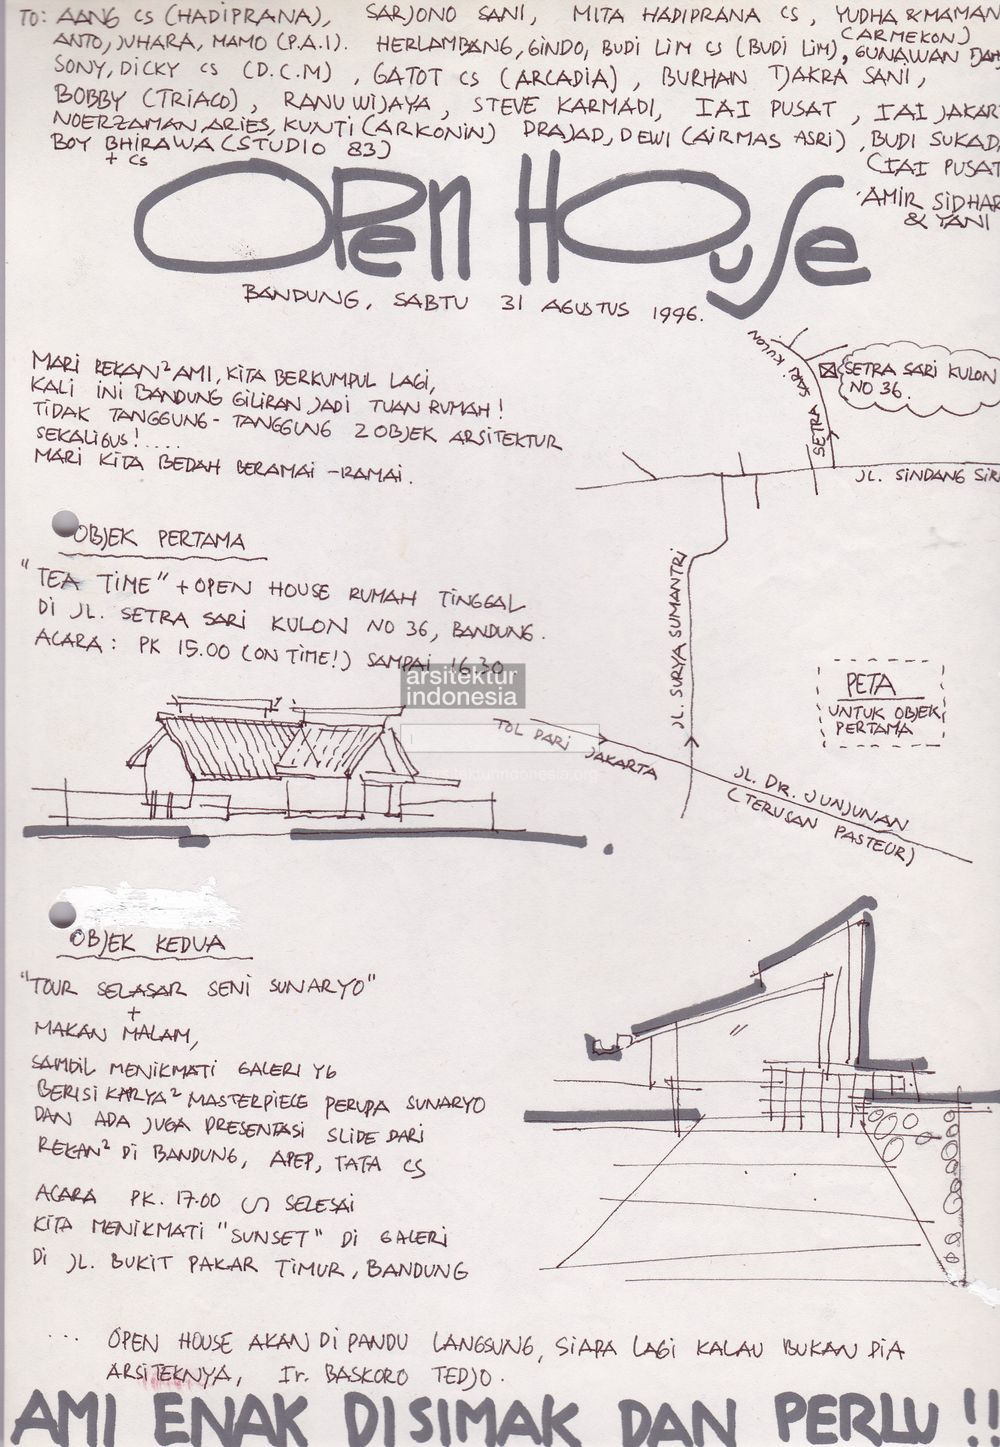 TO: AANG CS (HADIPRANA), SARJONO SANI, MITA HADIPRANA CS, YUDHA & MAMAN
(ARMEKON)
ANTO, JUHARA, MAMO (P.A.I). HERLAMBANG, GINDO, BUDI LIM CS (BUDI LIM), GUNAWAN
SONY, DICKY CS (D.C.M), GATOT CS (ARCADIA), BURHAN TJAKRA SANI,
BOBBY (TRIACO), RANU WIJAYA, STEVE KARMADI, IAI PUSAT, IAI JAKAR
NOERZAMAN, ARIES, KUNTI (ARKONIN) DRAJAD, DEWI (AIRMAS ASRI), BUDI SUKADA
BOY BHIRAWA (STUDIO 83) (IAI PUSAT
+ CS
AMIR SIDHAR
& YANI
OPEN HOUSE
BANDUNG, SABTU 31 AGUSTUS 1996.
MARI REKAN² AMI, KITA BERKUMPUL LAGI,
KALI INI BANDUNG GILIRAN JADI TUAN RUMAH!
TIDAK TANGGUNG-TANGGUNG 2 OBJEK ARSITEKTUR
SEKALIGUS!....
MARI KITA BEDAH BERAMAI-RAMAI.
SETRA SARI KULON
SETRA SARI KULON
NO 36.
JL. SINDANG SIR
OBJEK PERTAMA
"TEA TIME" + OPEN HOUSE RUMAH TINGGAL
DI JL. SETRA SARI KULON NO 36, BANDUNG.
ACARA: PK 15.00 (ON TIME!) SAMPAI 16.30
JL. SURYA SUMANTRI
PETA
UNTUK OBJEK
PERTAMA
arsitektur
indonesia
arsitekturindonesia.org
TOL DARI JAKARTA
JL. DR. JUNJUNAN
(TERUSAN PASTEUR)
OBJEK KEDUA
"TOUR SELASAR SENI SUNARYO"
+
MAKAN MALAM,
SAMBIL MENIKMATI GALERI YG
BERISI KARYA² MASTERPIECE PERUPA SUNARYO
DAN ADA JUGA PRESENTASI SLIDE DARI
REKAN² DI BANDUNG, APEP, TATA CS
ACARA PK. 17.00 ∽ SELESAI
KITA MENIKMATI "SUNSET" DI GALERI
DI JL. BUKIT PAKAR TIMUR, BANDUNG
... OPEN HOUSE AKAN DI PANDU LANGSUNG, SIAPA LAGI KALAU BUKAN DIA
ARSITEKNYA, Ir. BASKORO TEDJO.
AMI ENAK DISIMAK DAN PERLU!!